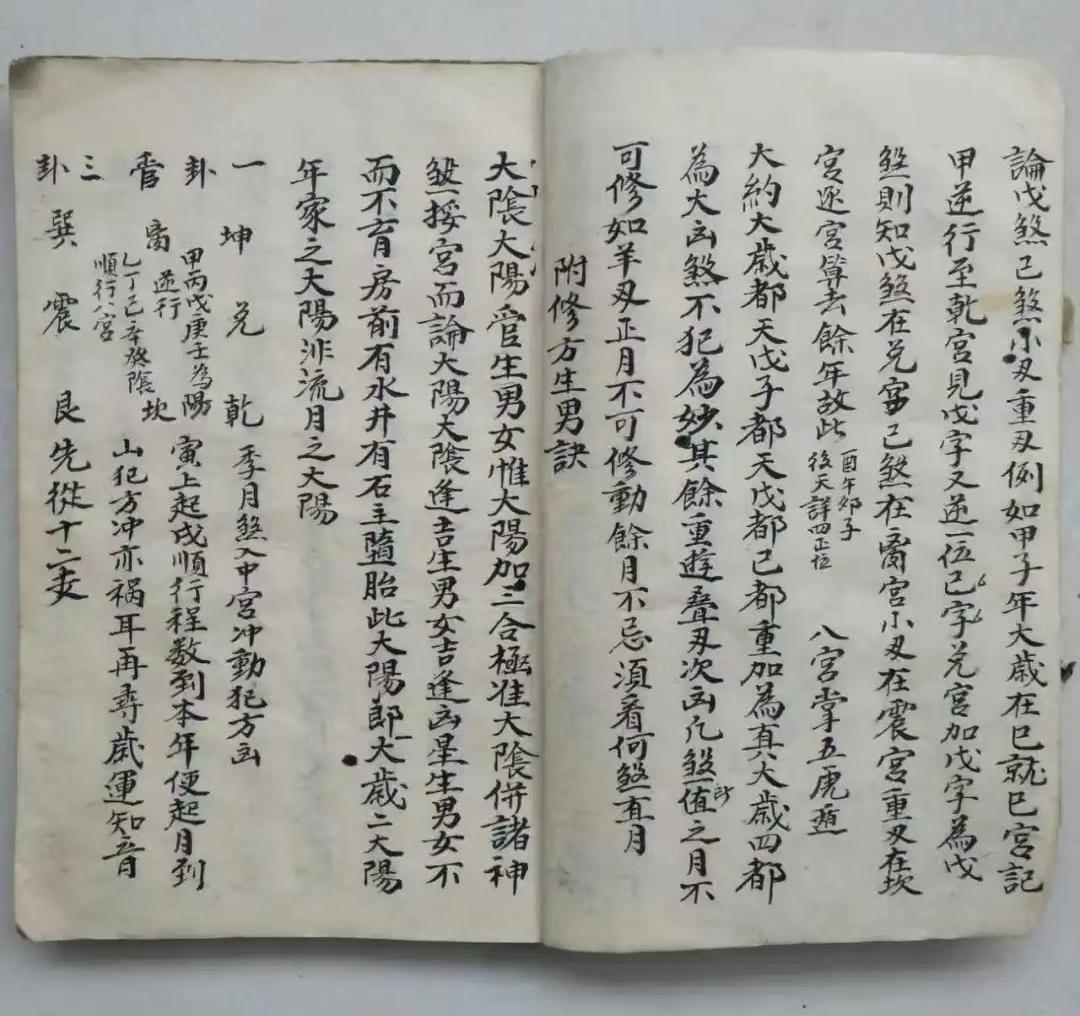 論戊煞己煞小刃重刃例如甲子年大歲在巳就巳宮記
甲逆行至乾宮見戊字又逆一位己字兑宮加戊字為戊
煞則知戊煞在兑宮己煞在离宮小刃在震宮重刃在坎
宮逐宮算去餘年故此
酉午卯子
後天詳四正位
八宮掌五虎遁
大約大歲都天戊子都天戊都己都重加為真大歲四都
為大凶煞不犯為妙其餘重遊叠刃次凶凡煞值所之月不
可修如羊刃正月不可修動餘月不忌須看何煞直月
附修方生男訣
大陰大陽管生男女惟大陽加三合極准大陰併諸神
煞挨宮而論大陽大陰逢吉生男女吉逢凶星生男女不
而不育房前有水井有石主墮胎此大陽郎大歲二大陽
年家之大陽非流月之大陽
一 坤 兑 乾 季月煞入中宮冲動犯方凶
卦
甲丙戊庚壬為陽
逆行
寅上起戊順行程数到本年便起月到
管 离
乙丁己辛癸陰
順行八宮
坎
山犯方冲亦禍耳再尋歲運知音
三
卦 巽 震 艮 先從十二支